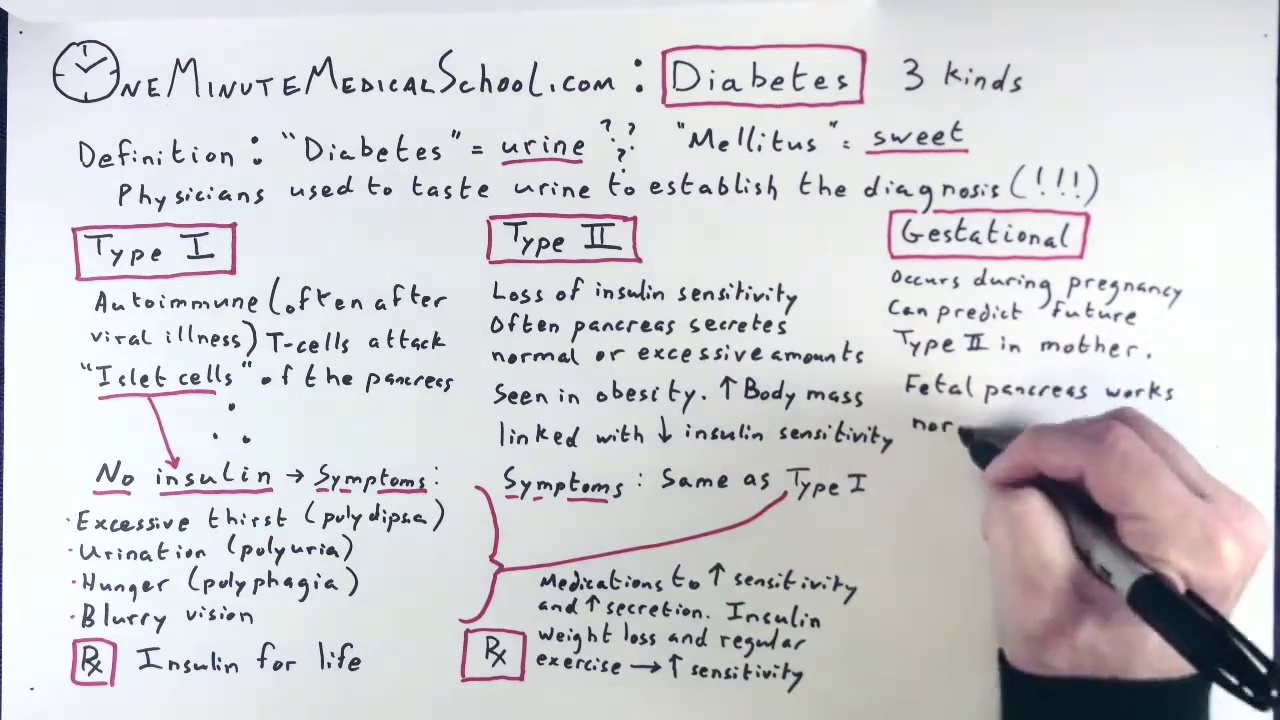 OneMinuteMedicalSchool.com: Diabetes 3 kinds
Definition: "Diabetes" = urine ??? "Mellitus" = sweet
Physicians used to taste urine to establish the diagnosis (!!!)
Type I
Autoimmune (often after
viral illness) T-cells attack
"Islet cells" of the pancreas
No insulin → Symptoms:
· Excessive thirst (polydipsia)
· Urination (polyuria)
· Hunger (polyphagia)
· Blurry vision
Rx Insulin for life
Type II
Loss of insulin sensitivity
Often pancreas secretes
normal or excessive amounts
Seen in obesity. ↑ Body mass
linked with ↓ insulin sensitivity
Symptoms: Same as Type I
Rx
Medications to ↑ sensitivity
and ↑ secretion. Insulin
weight loss and regular
exercise → ↑ sensitivity
Gestational
Occurs during pregnancy
Can predict future
Type II in mother.
Fetal pancreas works
nor